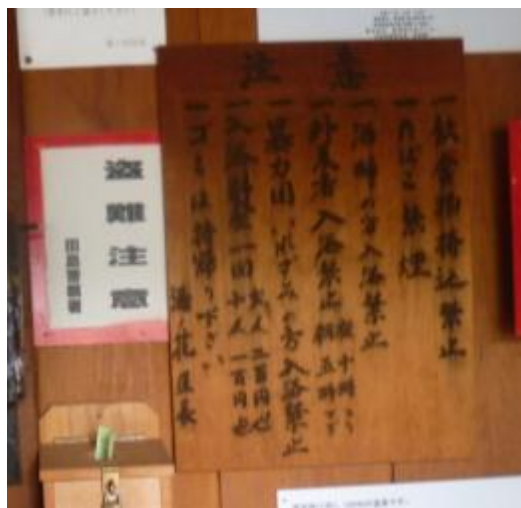 注意
一飲食物持込禁止
一たばこ禁煙
一酒酔の方入浴禁止
一外来者入浴禁止 夜十時より
朝五時まで
一暴力団、いれずみの方入浴禁止
一入浴料金一回 大人
小人 一百円也
一ゴミは持帰り下さい
湯ノ花区長
盗難注意
田島警察署